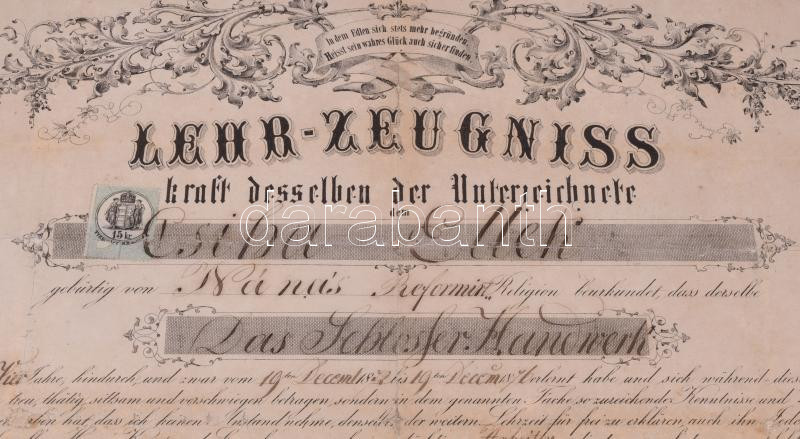 In dem Edlen sich stets mehr begründen,
Heisst sein wahres Glück auch sicher finden.
LEHR-ZEUGNISS
kraft desselben der Unterzeichnete
dem
15 kr.
Csipa Elek
darabanth
gebürtig von Nánás Reformirt. Religion beurkundet, dass derselbe
Das Schlosser-Handwerk
Jahre, hindurch, und zwar vom 19ten Decemb. bis 19ten Decem. erlernt habe und sich während
treu, thätig, sittsam und verschwiegen betragen, sondern in dem genannten Fache so zureichende Kenntnisse und
haben hat, dass ich keinen Anstand nehme, denselben der weitern Lehrzeit für frei zu erklären, auch ihn Jedem